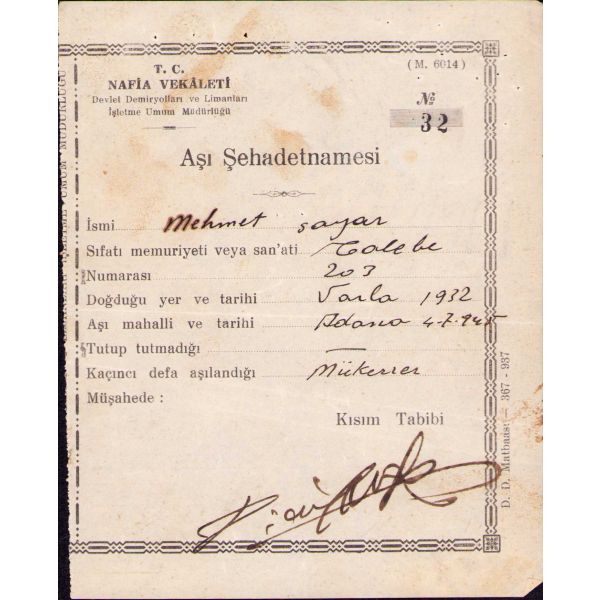 T. C.
NAFİA VEKÂLETİ
Devlet Demiryolları ve Limanları
İşletme Umum Müdürlüğü
(M. 6014)
№
32
Aşı Şehadetnamesi
İsmi Mehmet Sayar
Sıfatı memuriyeti veya san'ati Talebe
Numarası 203
Doğduğu yer ve tarihi Varla 1932
Aşı mahalli ve tarihi Adana 4.7.945
Tutup tutmadığı —
Kaçıncı defa aşılandığı Mükerrer
Müşahede :
Kısım Tabibi
D. D. Matbaası — 367 - 937
UMUM MÜDÜRLÜĞÜ